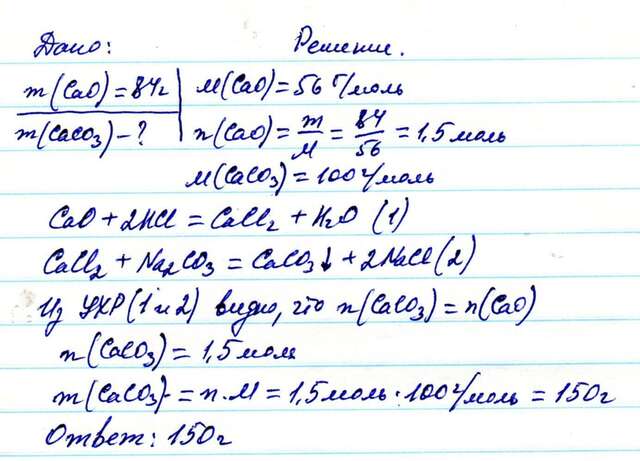 Дано: Решение.
m(CaO)=84г M(CaO)=56 г/моль
m(CaCO₃)-? n(CaO)=m/M=84/56=1,5 моль
M(CaCO₃)=100 г/моль
CaO+2HCl=CaCl₂+H₂O (1)
CaCl₂+Na₂CO₃=CaCO₃↓+2NaCl (2)
Из УХР(1 и 2) видно, что n(CaCO₃)=n(CaO)
n(CaCO₃)=1,5 моля
m(CaCO₃)=n·M=1,5 моль·100 г/моль=150г
Ответ: 150г